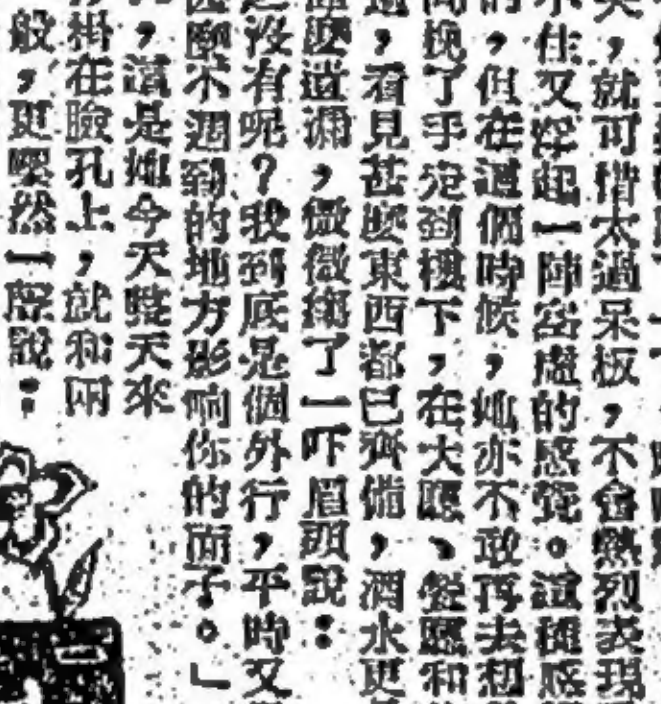 就可惜太過呆板，不會熱烈表現
不住又浮起一陣空虛的感覺。這種感
的，但在這個時候，她亦不敢再去想
挽了手走到樓下，在大廳、餐廳和
，看見甚麼東西都已齊備，酒水更
麼道謝，微微縐了一吓眉頭說：
沒有呢？我到底是個外行，平時又
不週到的地方影响你的面子。」
，這是她今天整天來
掛在臉孔上，就和兩
般，更嘿然一聲說：